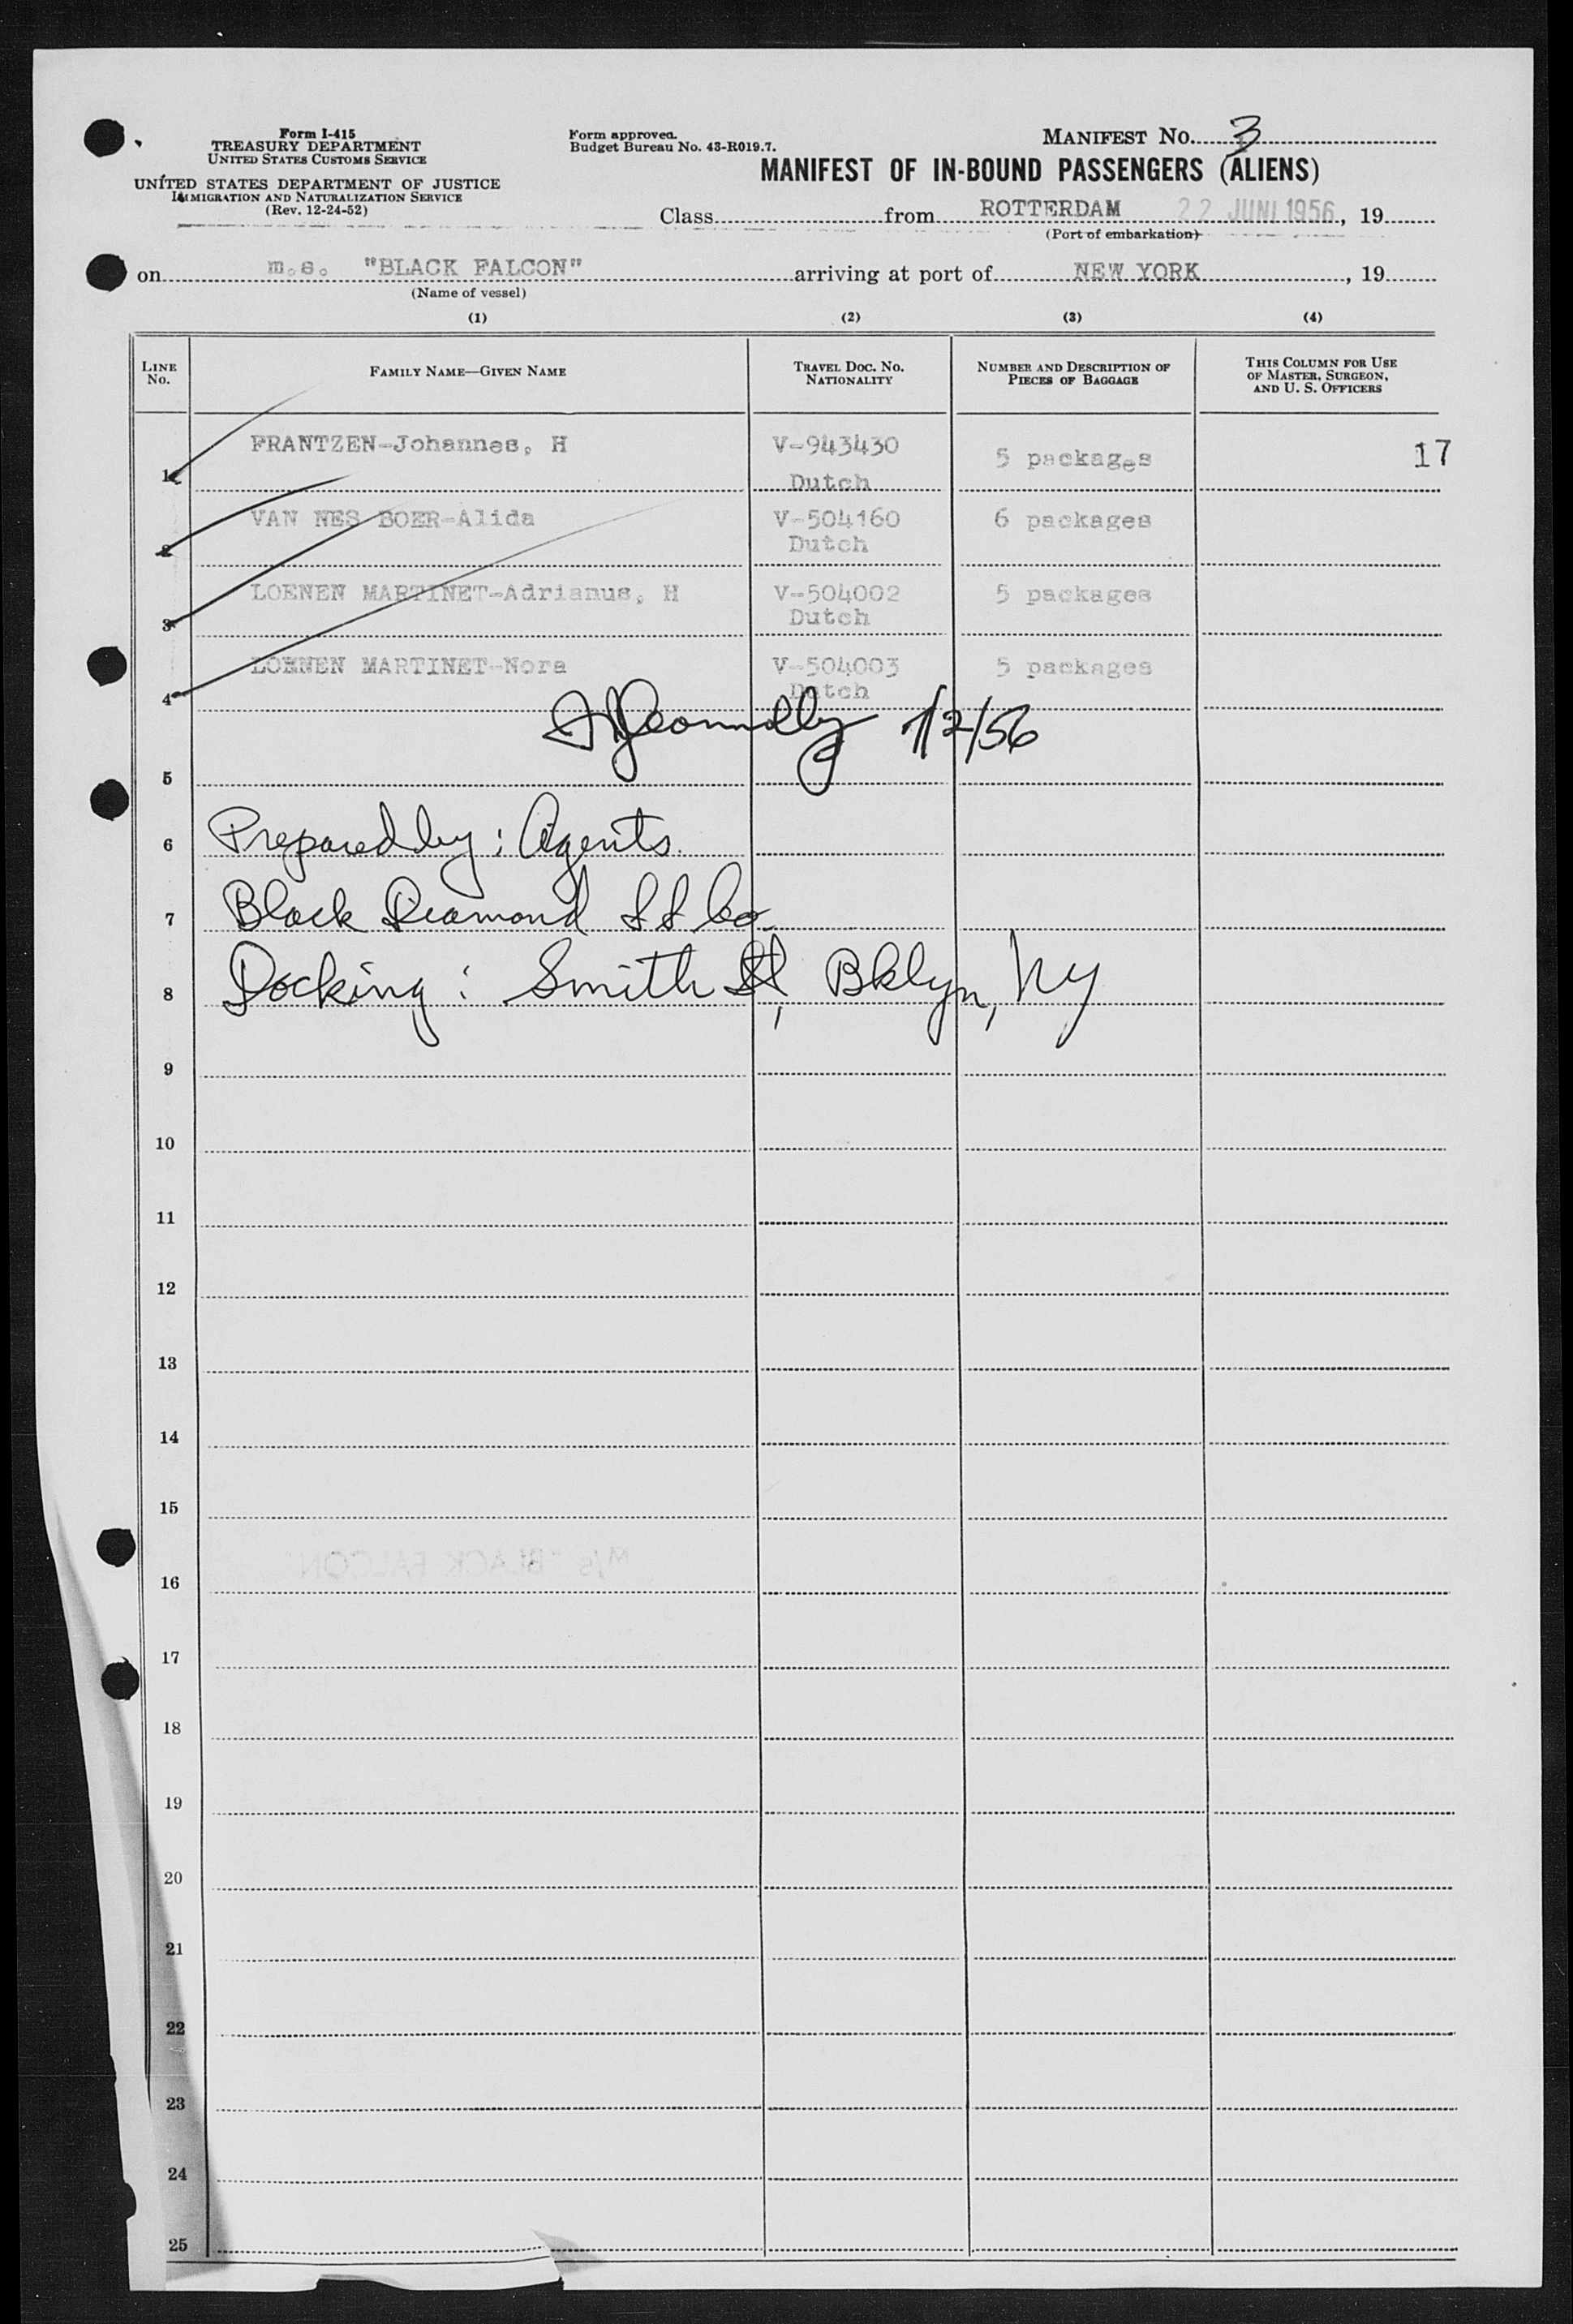 Form I-415
TREASURY DEPARTMENT
UNITED STATES CUSTOMS SERVICE
UNITED STATES DEPARTMENT OF JUSTICE
IMMIGRATION AND NATURALIZATION SERVICE
(Rev. 12-24-52)
Form approved.
Budget Bureau No. 43-R019.7.
MANIFEST NO. 3
MANIFEST OF IN-BOUND PASSENGERS (ALIENS)
Class from ROTTERDAM 22 JUNI 1956, 19
(Port of embarkation)
on m.s. "BLACK FALCON" arriving at port of NEW YORK, 19
(Name of vessel)
(1) (2) (3) (4)
LINE NO. FAMILY NAME—GIVEN NAME TRAVEL DOC. NO. NATIONALITY NUMBER AND DESCRIPTION OF PIECES OF BAGGAGE THIS COLUMN FOR USE OF MASTER, SURGEON, AND U. S. OFFICERS
1 FRANTZEN-Johannes, H V-943430 5 packages 17
Dutch
2 VAN NES BOER-Alida V-504160 6 packages
Dutch
3 LOENEN MARTINET-Adrianus, H V-504002 5 packages
Dutch
4 LOENEN MARTINET-Nora V-504003 5 packages
Dutch
Connolly 7/2/56
5
6 Prepared by: Agents
7 Black Diamond SS Co.
8 Docking: Smith St, Bklyn, NY
9
10
11
12
13
14
15
M/S "BLACK FALCON"
16
17
18
19
20
21
22
23
24
25